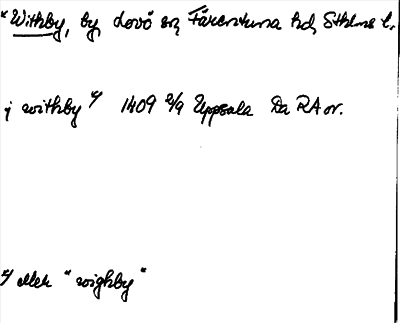 "Withby, by, Lovö sn, Färentuna hd, Sthlms l.
j withby x/ 1409 2/9 Uppsala Da RA or.
x/ eller "wighby"